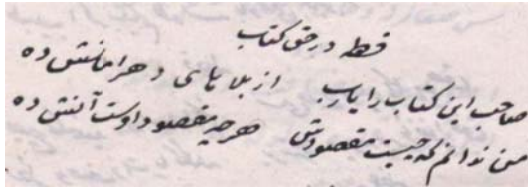 قطعه در حق کتاب
صاحب این کتاب را یارب از بلاهای دهر امانش ده
من ندانم که چیست مقصودش هرچه مقصود اوست آنش ده